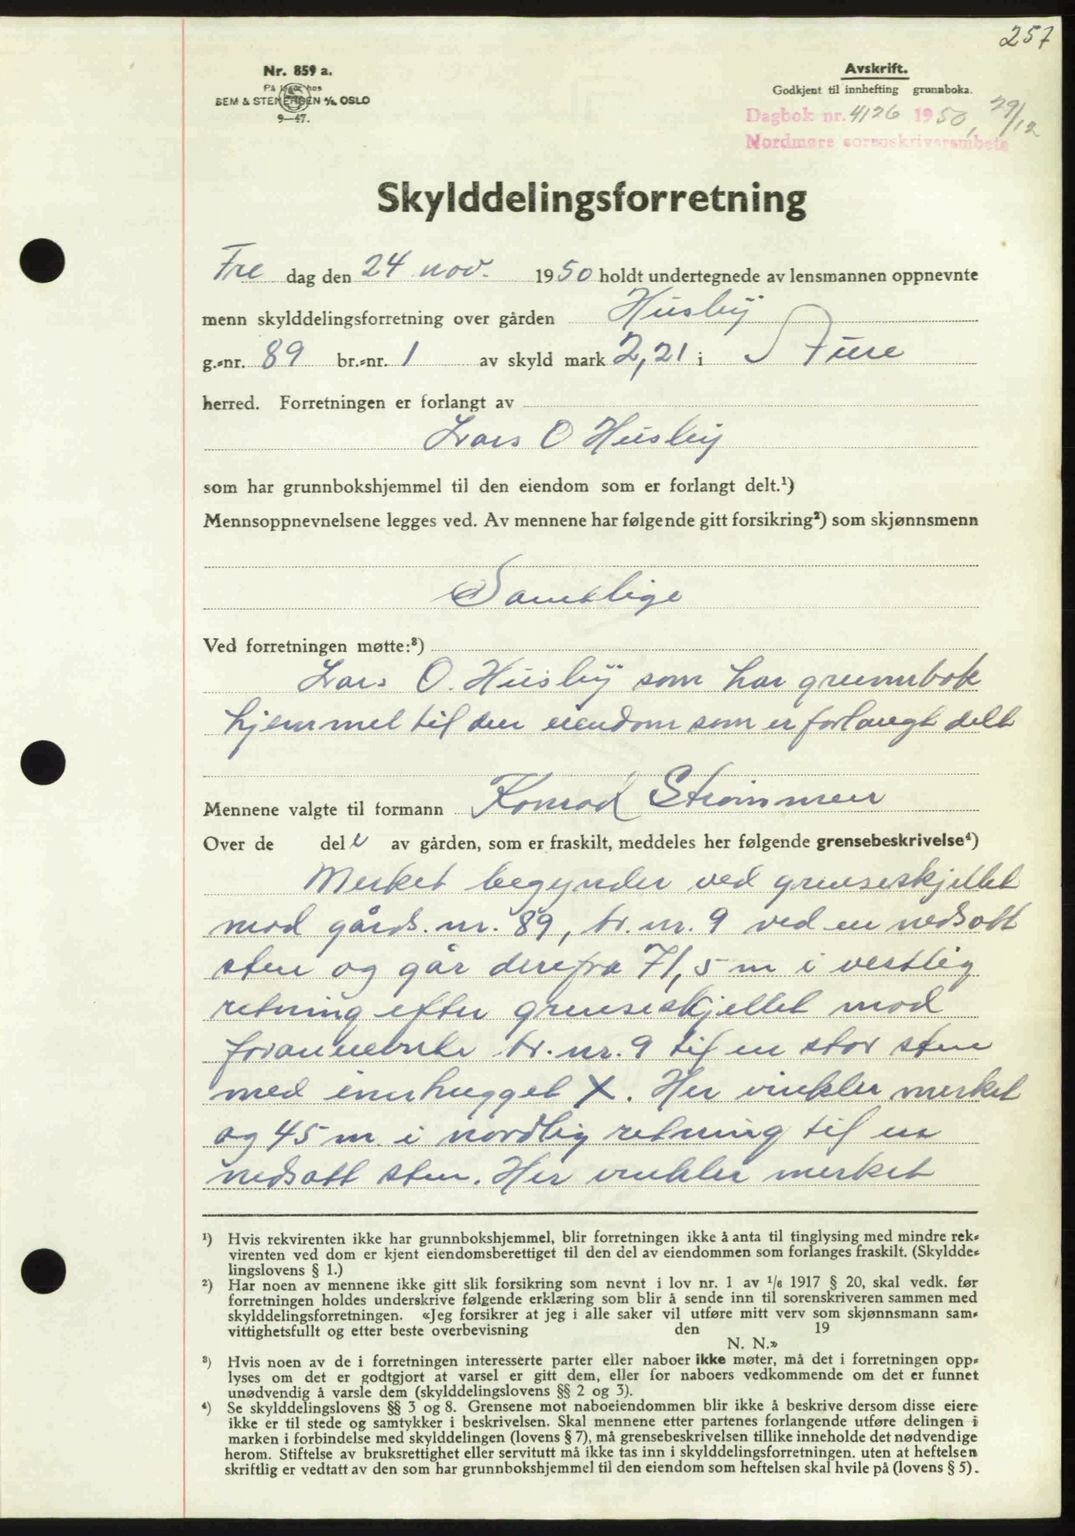 257
Nr. 859 a.
På lager hos
SEM & STENERSEN A/S, OSLO
9—47.
Avskrift.
Godkjent til innhefting grunnboka.
Dagbok nr. 4126 1950, 29/12
Nordmøre sorenskriverembete
Skylddelingsforretning
Fre dag den 24 nov. 1950 holdt undertegnede av lensmannen oppnevnte
menn skylddelingsforretning over gården Husby
g.-nr. 89 br.-nr. 1 av skyld mark 2,21 i Ture
herred. Forretningen er forlangt av
Lars O Husby
som har grunnbokshjemmel til den eiendom som er forlangt delt.¹)
Mennsoppnevnelsene legges ved. Av mennene har følgende gitt forsikring²) som skjønnsmenn
Samtlige
Ved forretningen møtte:³)
Lars O. Husby som har grunnbok
hjemmel til den eiendom som er forlangt delt
Mennene valgte til formann Konrad Strømmen
Over de del e av gården, som er fraskilt, meddeles her følgende grensebeskrivelse⁴)
Merket begynder ved grenseskjellet
mod gårds. nr. 89, br. nr. 9 ved en nedsatt
sten og går derefra 71,5 m i vestlig
retning efter grenseskjellet mod
forannevnte br. nr. 9 til en stor sten
med innhugget X. Her vinkler merket
og 45 m i nordlig retning til en
nedsatt sten. Her vinkler merket
¹) Hvis rekvirenten ikke har grunnbokshjemmel, blir forretningen ikke å anta til tinglysing med mindre rek-
virenten ved dom er kjent eiendomsberettiget til den del av eiendommen som forlanges fraskilt. (Skyldde-
lingslovens § 1.)
²) Har noen av mennene ikke gitt slik forsikring som nevnt i lov nr. 1 av 1/6 1917 § 20, skal vedk. før
forretningen holdes underskrive følgende erklæring som blir å sende inn til sorenskriveren sammen med
skylddelingsforretningen. «Jeg forsikrer at jeg i alle saker vil utføre mitt verv som skjønnsmann sam-
vittighetsfullt og etter beste overbevisning den 19
N. N.»
³) Hvis noen av de i forretningen interesserte parter eller naboer ikke møter, må det i forretningen opp-
lyses om det er godtgjort at varsel er gitt dem, eller for naboers vedkommende om det er funnet
unødvendig å varsle dem (skylddelingslovens §§ 2 og 3).
⁴) Se skylddelingslovens §§ 3 og 8. Grensene mot naboeiendommen blir ikke å beskrive dersom disse eiere
ikke er til stede og samtykker i beskrivelsen. Skal mennene etter partenes forlangende utføre delingen i
marken i forbindelse med skylddelingen (lovens § 7), må grensebeskrivelsen tillike inneholde det nødvendige
herom. Stiftelse av bruksrettighet eller servitutt må ikke tas inn i skylddelingsforretningen. uten at heftelsen
skriftlig er vedtatt av den som har grunnbokshjemmel til den eiendom som heftelsen skal hvile på (lovens § 5).